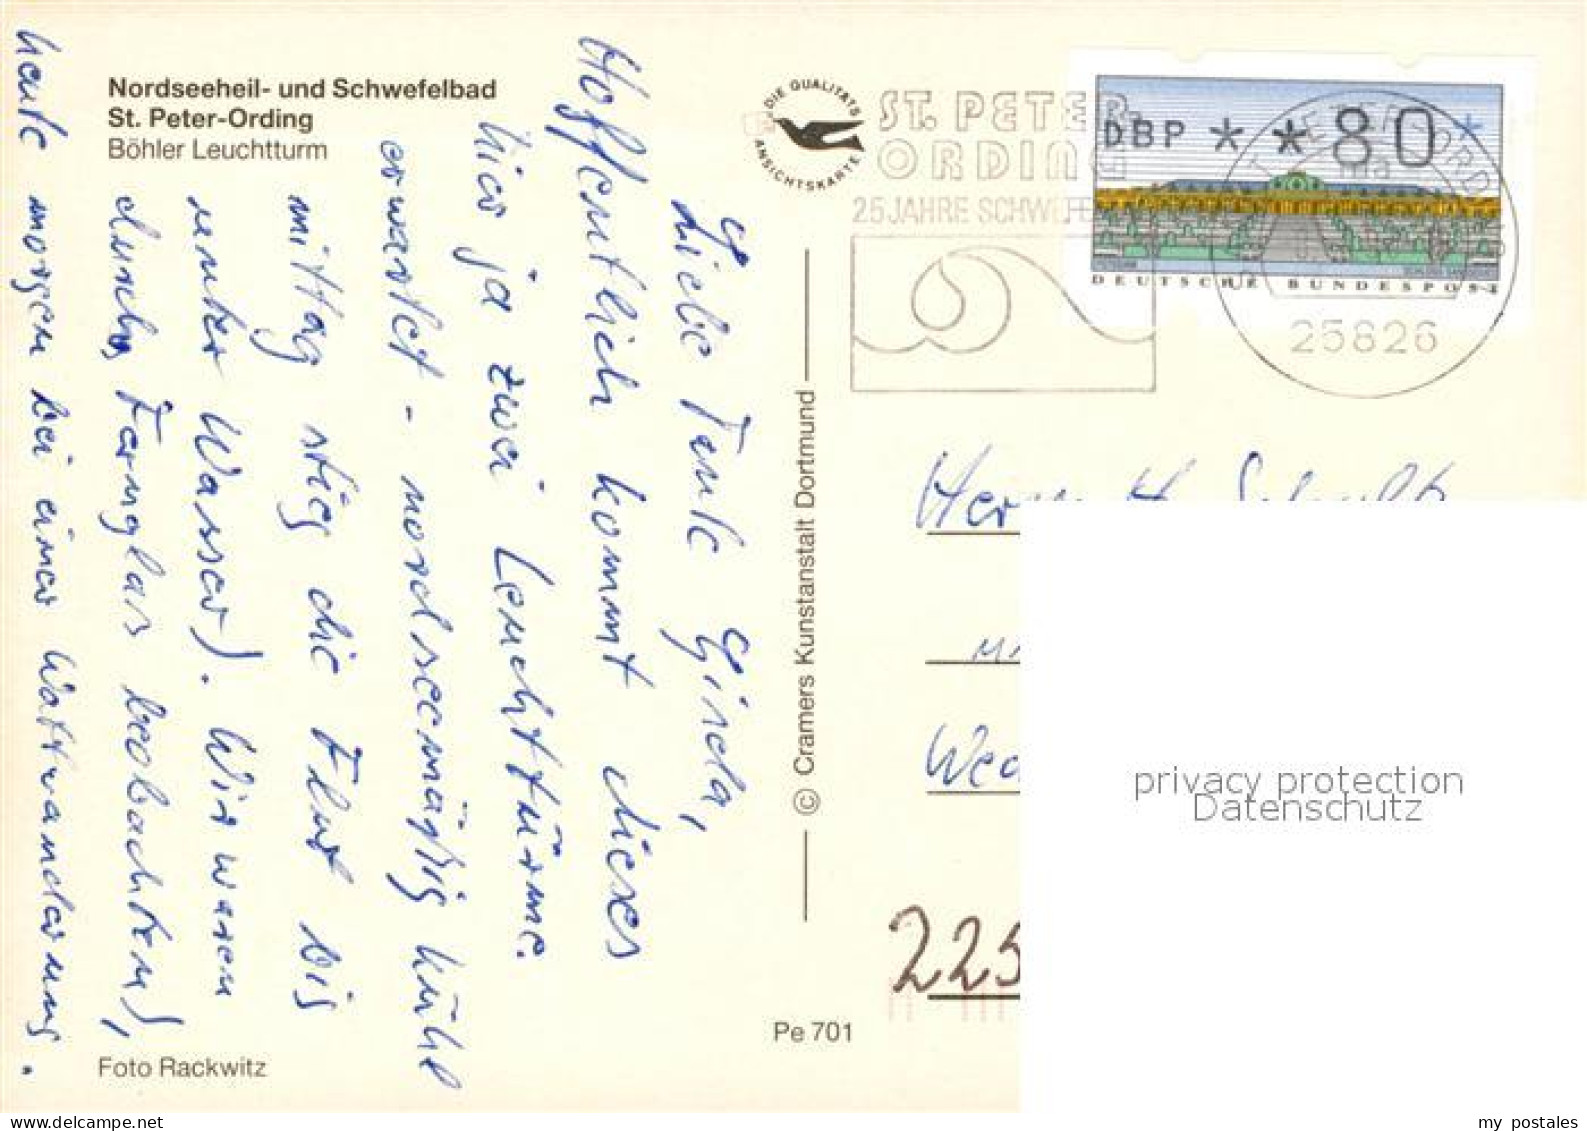 Nordseeheil- und Schwefelbad
St. Peter-Ording
Böhler Leuchtturm
DIE QUALITÄTS
ANSICHTSKARTE
ST. PETER-
ORDING
25 JAHRE SCHWEFE
DBP * *80*
DEUTSCHE BUNDESPOST
25826
Liebe Tante Girda,
Hoffentlich kommt dieses
hier ja zwei Leuchttürme.
erwartet - nordseemäßig kühl
mittag stieg die Flut bis
unter Wasser). Wir waren
durchs Fernglas beobachten),
heute morgen bei einer Wattwanderung.
© Cramers Kunstanstalt Dortmund
Herrn H. Schult
225
Pe 701
Foto Rackwitz
privacy protection
Datenschutz
my postales
www.delcampe.net